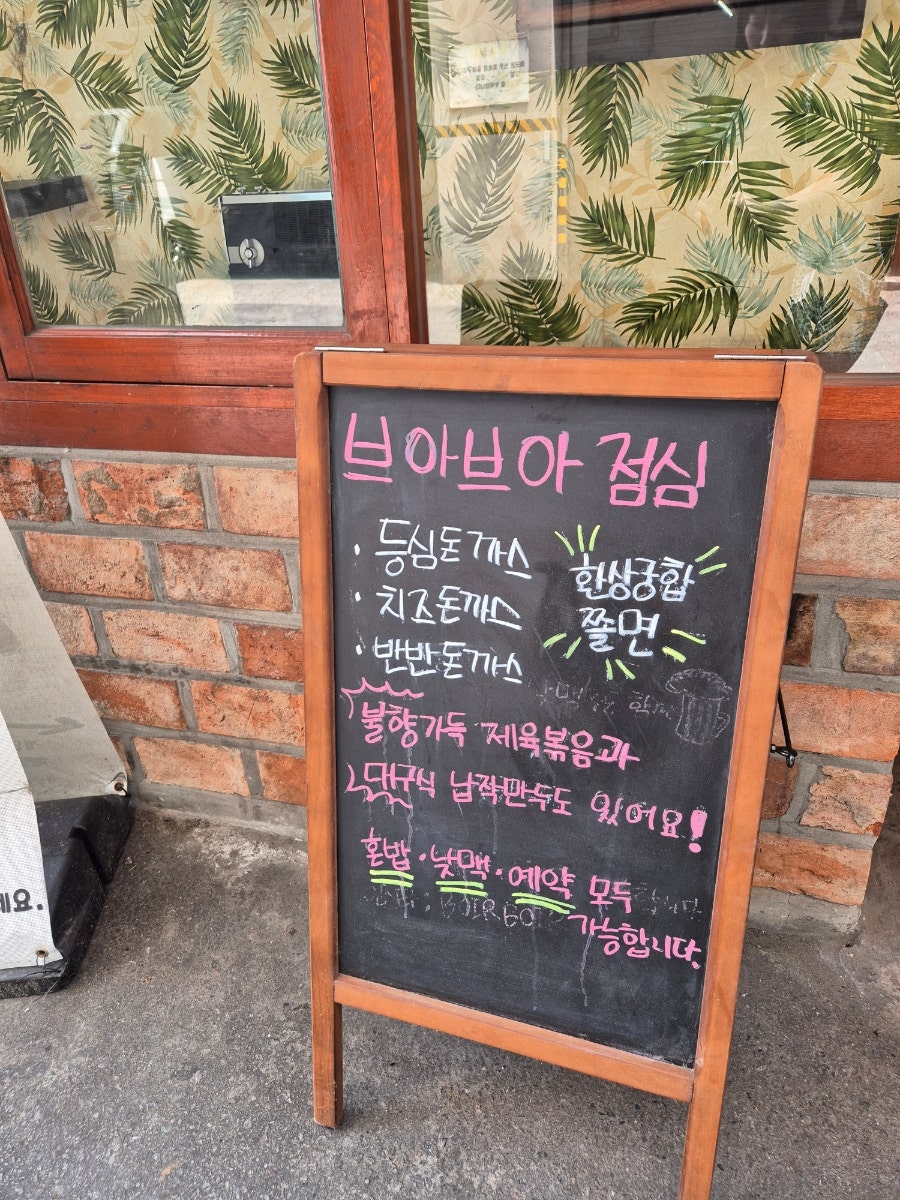 브아브아 점심
· 등심돈까스
· 치즈돈까스
· 반반돈까스
환상궁합
쫄면
불향가득 제육볶음과
대구식 납작만두도 있어요!
혼밥 · 낮맥 · 예약 모두
가능합니다.
세요.